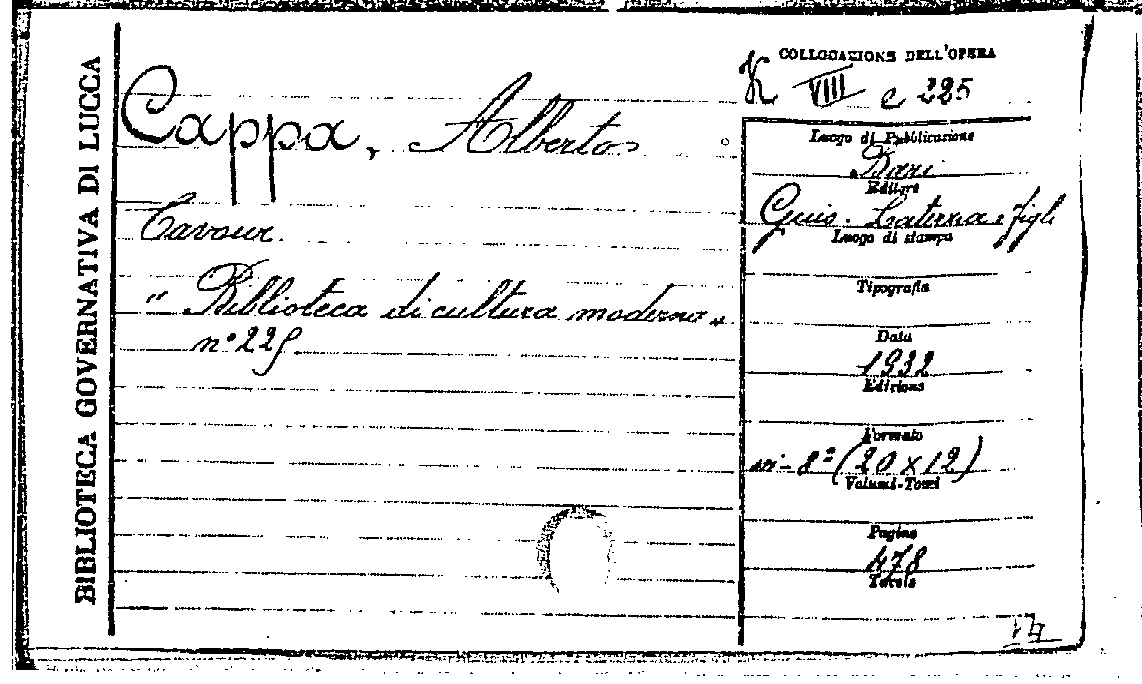 BIBLIOTECA GOVERNATIVA DI LUCCA
Cappa, Alberto
Cavour.
" Biblioteca di cultura moderna „
n° 225
COLLOCAZIONE DELL'OPERA
K VIII e 225
Luogo di Pubblicazione
Bari
Editore
Gius. Laterza e figli
Luogo di stampa
Tipografia
Data
1932
Edizione
Formato
in-8° (20 x 12)
Volumi-Tomi
Pagine
478
Tavole